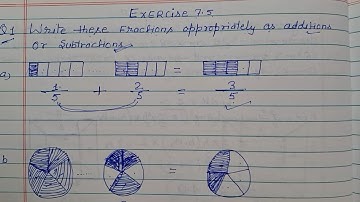 EXERCISE 7.5
Q1 Write these Fractions appropriately as additions
or Subtractions
a)
1/5 + 2/5 = 3/5
b =